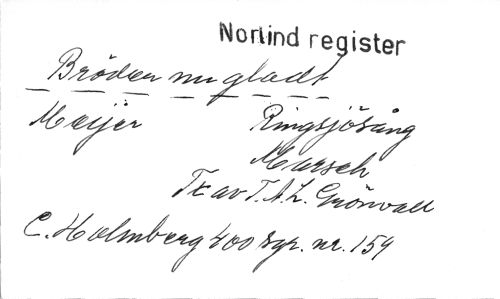 Norlind register
Bröder nu gladt
Meijer Ringsjösång
Marsch
Tx av T.A.L. Grönvall
C. Holmberg 400 sgr. nr. 159